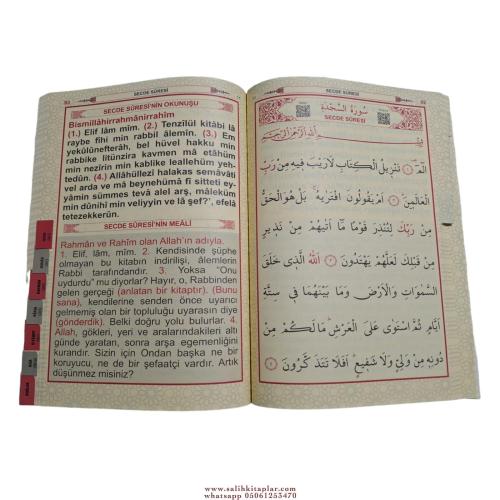 SECDE SÛRESİ
SECDE SÛRESİ'NİN OKUNUŞU
Bismillâhirrahmânirrahîm
(1.) Elif lâm mîm. (2.) Tenzîlül kitâbi lâ
raybe fîhi min rabbil âlemîn. (3.) Em
yekûlûnefterâh, bel hüvel hakku min
rabbike litünzira kavmen mâ etâhüm
min nezîrin min kablike leallehüm yeh-
tedûn. (4.) Allâhüllezî halakas semâvâti
vel arda ve mâ beynehümâ fî sitteti ey-
yâmin sümmes tevâ alel arş, mâleküm
min dûnihî min veliyyin ve lâ şefî', efelâ
tetezekkerûn.
SECDE SÛRESİ'NİN MEÂLİ
Rahmân ve Rahîm olan Allah'ın adıyla.
1. Elif, lâm, mîm. 2. Kendisinde şüphe
olmayan bu kitabın indirilişi, âlemlerin
Rabbi tarafındandır. 3. Yoksa "Onu
uydurdu" mu diyorlar? Hayır, o, Rabbinden
gelen gerçeği (anlatan bir kitaptır). (Bunu
sana), kendilerine senden önce uyarıcı
gelmemiş olan bir topluluğu uyarasın diye
(gönderdik). Belki doğru yolu bulurlar. 4.
Allah, gökleri, yeri ve aralarındakileri altı
günde yaratan, sonra arşa egemenliğini
kurandır. Sizin için Ondan başka ne bir
koruyucu, ne de bir şefaatçi vardır. Artık
düşünmez misiniz?
SECDE SÛRESİ
سُورَةُ السَّجْدَةِ
SECDE SÛRESİ
بِسْمِ اللّٰهِ الرَّحْمٰنِ الرَّحِيمِ
الٓمٓ ١ تَنْزِيلُ الْكِتَابِ لَا رَيْبَ فِيهِ مِنْ رَبِّ
الْعَالَمِينَ ٢ اَمْ يَقُولُونَ افْتَرٰيهُ بَلْ هُوَ الْحَقُّ
مِنْ رَبِّكَ لِتُنْذِرَ قَوْمًا مَٓا اَتٰيهُمْ مِنْ نَذِيرٍ
مِنْ قَبْلِكَ لَعَلَّهُمْ يَهْتَدُونَ ٣ اَللّٰهُ الَّذِى خَلَقَ
السَّمٰوَاتِ وَالْاَرْضَ وَمَا بَيْنَهُمَا فِى سِتَّةِ
اَيَّامٍ ثُمَّ اسْتَوٰى عَلَى الْعَرْشِ مَا لَكُمْ مِنْ
دُونِهِ مِنْ وَلِىٍّ وَلَا شَفِيعٍ اَفَلَا تَتَذَكَّرُونَ ٤
www.salihkitaplar.com
whatsapp 05061253470